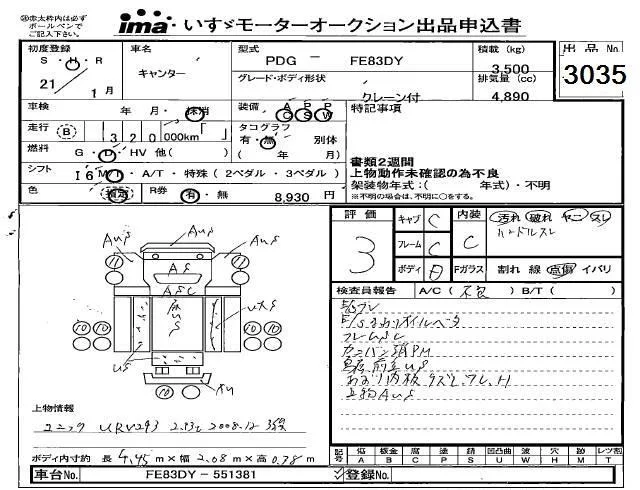 ※赤太枠内は必ず
ボールペンで
ご記入下さい。
ima いすゞモーターオークション出品申込書
初度登録
S・H・R
21 / 1 月
車名
キャンター
型式
PDG - FE83DY
グレード・ボディ形状
クレーン付
積載 (kg)
3,500
排気量 (cc)
4,890
出品No.
3035
車検
年 月・抹消
装備 A P P
C S W
特記事項
走行 B 3 2 0 000km「 」
タコグラフ
有・無 別体
( 年 月)
燃料 G・D・HV 他( )
シフト I 6 M・A/T・特殊(2ペダル・3ペダル)
書類2週間
上物動作未確認の為不良
架装物年式:( 年式)・不明
※不明の場合は、不明に○をする。
色 指定 R券 有・無 8,930 円
評価
3
キャブ C
フレーム C
ボディ D
内装
C
Fガラス
汚れ 破れ ヤニ スレ
ハンドルスレ
割れ 線 点傷 イバリ
検査員報告 A/C(不良) B/T( )
フレームSC
上物AuS
AuS
AuS
AuS
AS
ASC
床
uS
uS
11
11
10 10
10 10
10
上物情報
ユニック URV293 2.93t 2008.12 3段
ボディ内寸約 長 4.45 m×幅 2.08 m×高 0.38 m
記号 傷 板金 腐 塗 錆 凹凸曲 波 穴 跡 レツ割
A B C P S U W H M T
車台No. FE83DY-551381
登録No.